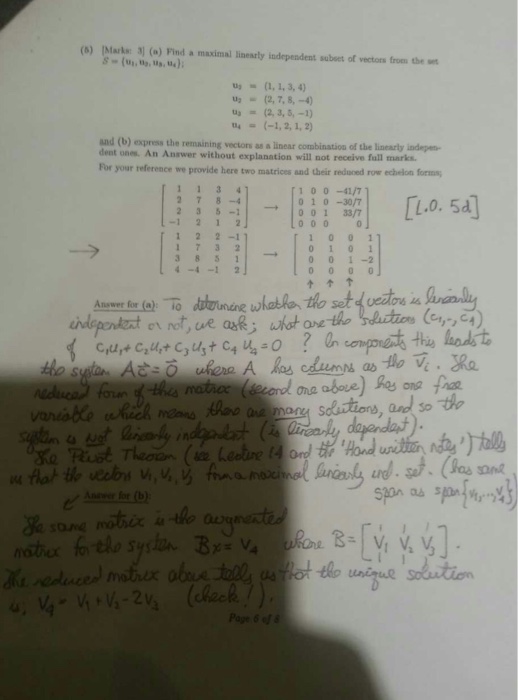 (5) [Marks: 3] (a) Find a maximal linearly independent subset of vectors from the set
S = {u₁, u₂, u₃, u₄};
u₁ = (1, 1, 3, 4)
u₂ = (2, 7, 8, −4)
u₃ = (2, 3, 5, −1)
u₄ = (−1, 2, 1, 2)
and (b) express the remaining vectors as a linear combination of the linearly indepen-
dent ones. An Answer without explanation will not receive full marks.
For your reference we provide here two matrices and their reduced row echelon forms;
[ 1 1 3 4 ] [ 1 0 0 −41/7 ]
[ 2 7 8 −4 ] → [ 0 1 0 −30/7 ]
[ 2 3 5 −1 ] [ 0 0 1 33/7 ]
[ −1 2 1 2 ] [ 0 0 0 0 ]
[L.O. 5d]
[ 1 2 2 −1 ] [ 1 0 0 1 ]
→ [ 1 7 3 2 ] → [ 0 1 0 1 ]
[ 3 8 5 1 ] [ 0 0 1 −2 ]
[ 4 −4 −1 2 ] [ 0 0 0 0 ]
↑ ↑ ↑
Answer for (a): To determine whether the set of vectors is linearly
independent or not, we ask; what are the solutions (c₁,-,c₄)
of c₁u₁ + c₂u₂ + c₃u₃ + c₄u₄ = 0 ? In components this leads to
the system Ac⃗ = 0⃗ where A has columns as the v⃗ᵢ. The
reduced form of this matrix (second one above) has one free
variable which means there are many solutions, and so the
system is not linearly independent (is linearly dependent).
The Pivot Theorem (see Lecture 14 and the 'Hand written notes') tells
us that the vectors v₁, v₂, v₃ form a maximal linearly ind. set. (has same
span as span{v₁,--,v₄})
Answer for (b):
The same matrix is the augmented
matrix for the system Bx = v₄ where B = [v₁ v₂ v₃].
The reduced matrix above tells us that the unique solution
is; v₄ = v₁ + v₂ − 2v₃ (check!).
Page 6 of 8